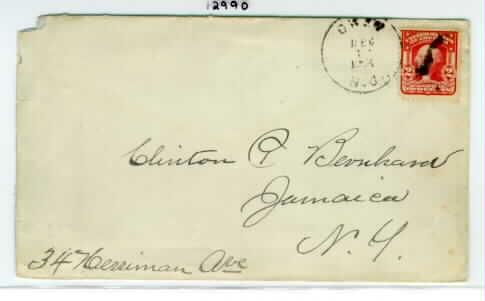 12990
DEC
N.C.
2 2
Clinton C. Bernhard
Jamaica
N.Y.
34 Herriman Ave